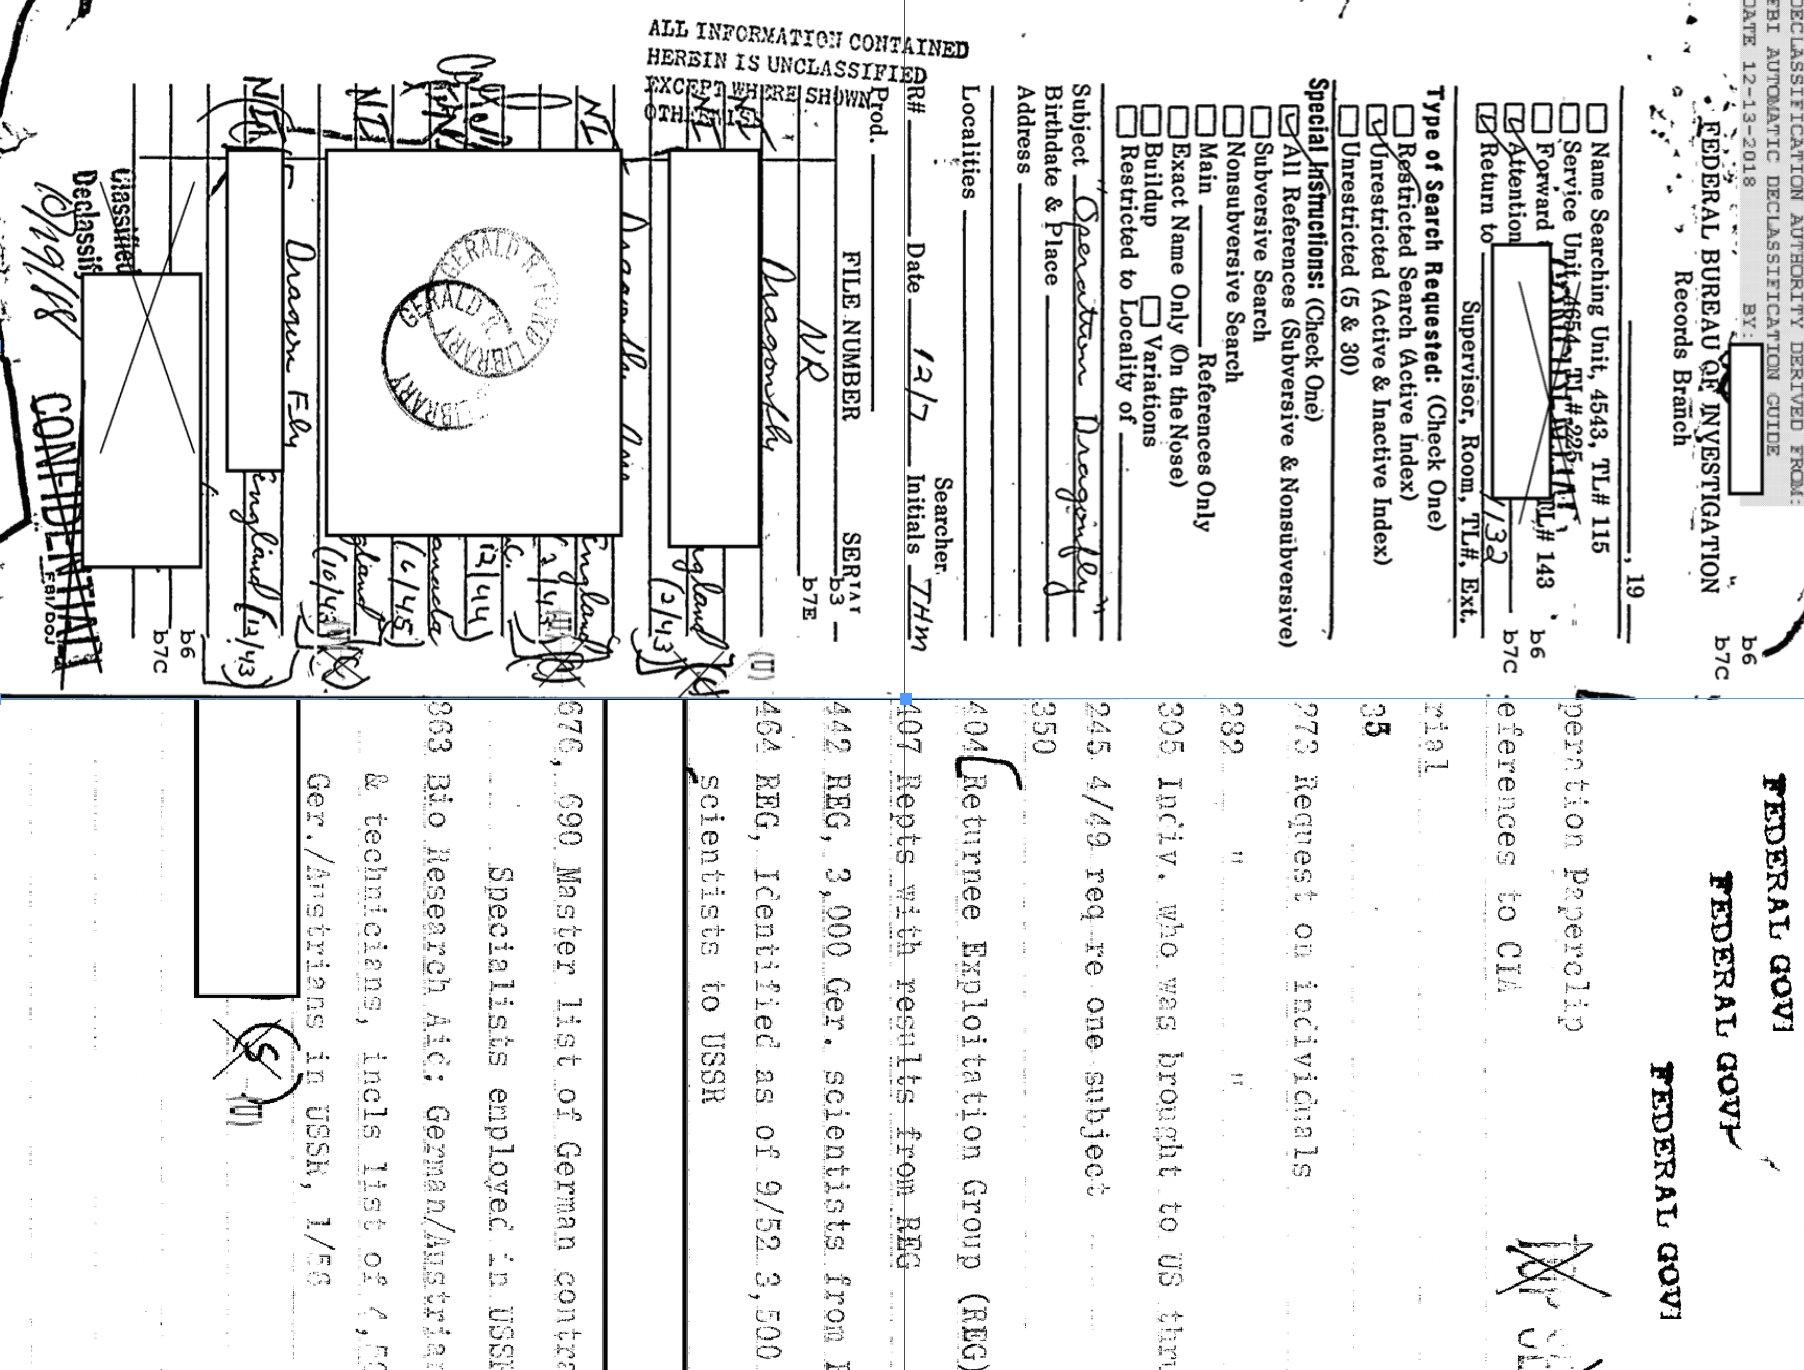 DECLASSIFICATION AUTHORITY DERIVED FROM:
FBI AUTOMATIC DECLASSIFICATION GUIDE
DATE 12-13-2018 BY:
b6
b7C
FEDERAL BUREAU OF INVESTIGATION
Records Branch
, 19
Name Searching Unit, 4543, TL# 115
Service Unit, 4654, TL# 225
Forward TL# 143
Attention
Return to 132
b6
b7C
Supervisor, Room, TL#, Ext.
Type of Search Requested: (Check One)
Restricted Search (Active Index)
Unrestricted (Active & Inactive Index)
Unrestricted (5 & 30)
Special Instructions: (Check One)
All References (Subversive & Nonsubversive)
Subversive Search
Nonsubversive Search
Main References Only
Exact Name Only (On the Nose)
Buildup Variations
Restricted to Locality of
Subject "Operation Dragonfly"
Birthdate & Place
Address
Localities
R# Date 12/7 Searcher Initials THM
Prod.
FILE NUMBER SERIAL
b3
b7E
NR
Dragonfly
(U)
NI
England
(2/43)
NI
England
12/44
Canada
(6/45)
NI
(10/43)
Dragon Fly
England (12/43)
b6
b7C
Classified
Declassif
CONFIDENTIAL
FBI/DOJ
ALL INFORMATION CONTAINED
HEREIN IS UNCLASSIFIED
EXCEPT WHERE SHOWN
OTHERWISE
GERALD R. FORD LIBRARY
GERALD R. LIBRARY
FEDERAL GOVT
FEDERAL GOVT
FEDERAL GOVT
peration Paperclip
eferences to CIA
rial
35
273 Request on individuals
282 " "
305 Indiv. who was brought to US thr
245 4/49 req re one subject
350
404 Returnee Exploitation Group (REG)
407 Repts with results from REG
442 REG, 3,000 Ger. scientists from
464 REG, Identified as of 9/52 3,500
scientists to USSR
676, 690 Master list of German contra
Specialists employed in USSR
863 Bio Research Aid: German/Austrian
& technicians, incls list of
Ger./Austrians in USSR, 1/58
(S)
(U)